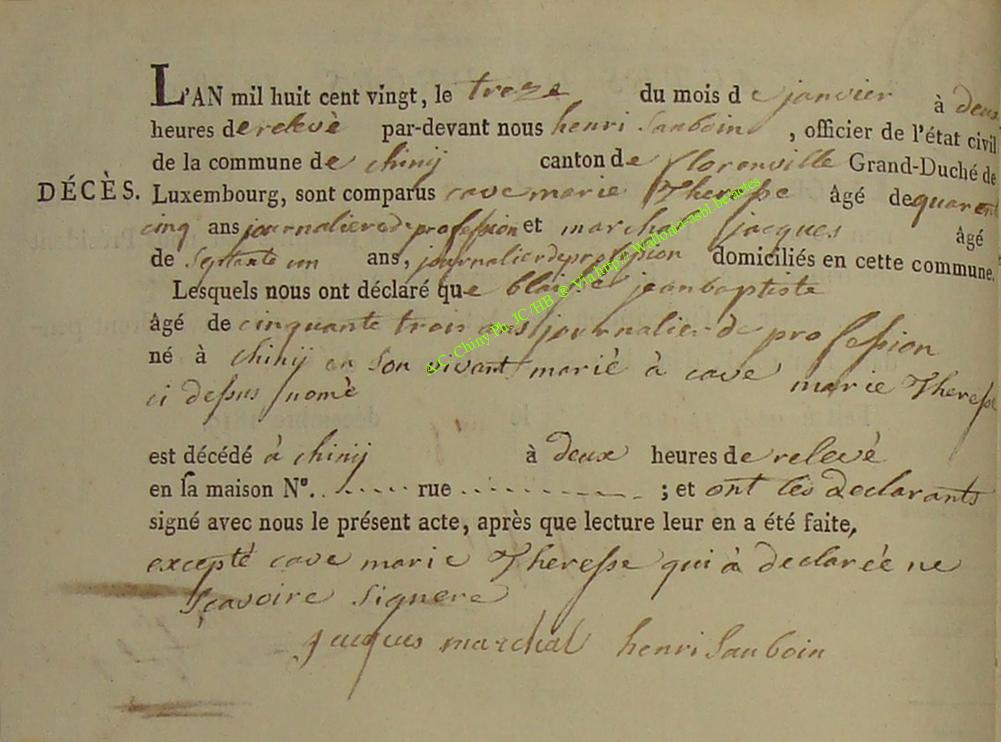 L'AN mil huit cent vingt, le treze du mois de janvier à deux
heures de relevè par-devant nous henri Sauboin, officier de l'état civil
de la commune de chinij canton de florenville Grand-Duché de
DÉCÈS. Luxembourg, sont comparus cave marie Theresse âgé de quarent
cinq ans journaliere de profession et marchal jacques âgé
de Septante un ans, journalier de profession domiciliés en cette commune.
Lesquels nous ont déclaré que jean baptiste
âgé de cinquante trois ans journalier de profession
né à chinij en Son vivant marié à cave marie Theresse
ci dessus nomè
est décédé à chinij à deux heures de relevé
en sa maison N°. ....... rue ............ ; et ont les declarants
signé avec nous le présent acte, après que lecture leur en a été faite,
excepté cave marie Theresse qui à declarée ne
Scavoire Signere
jacques marchal henri Sauboin